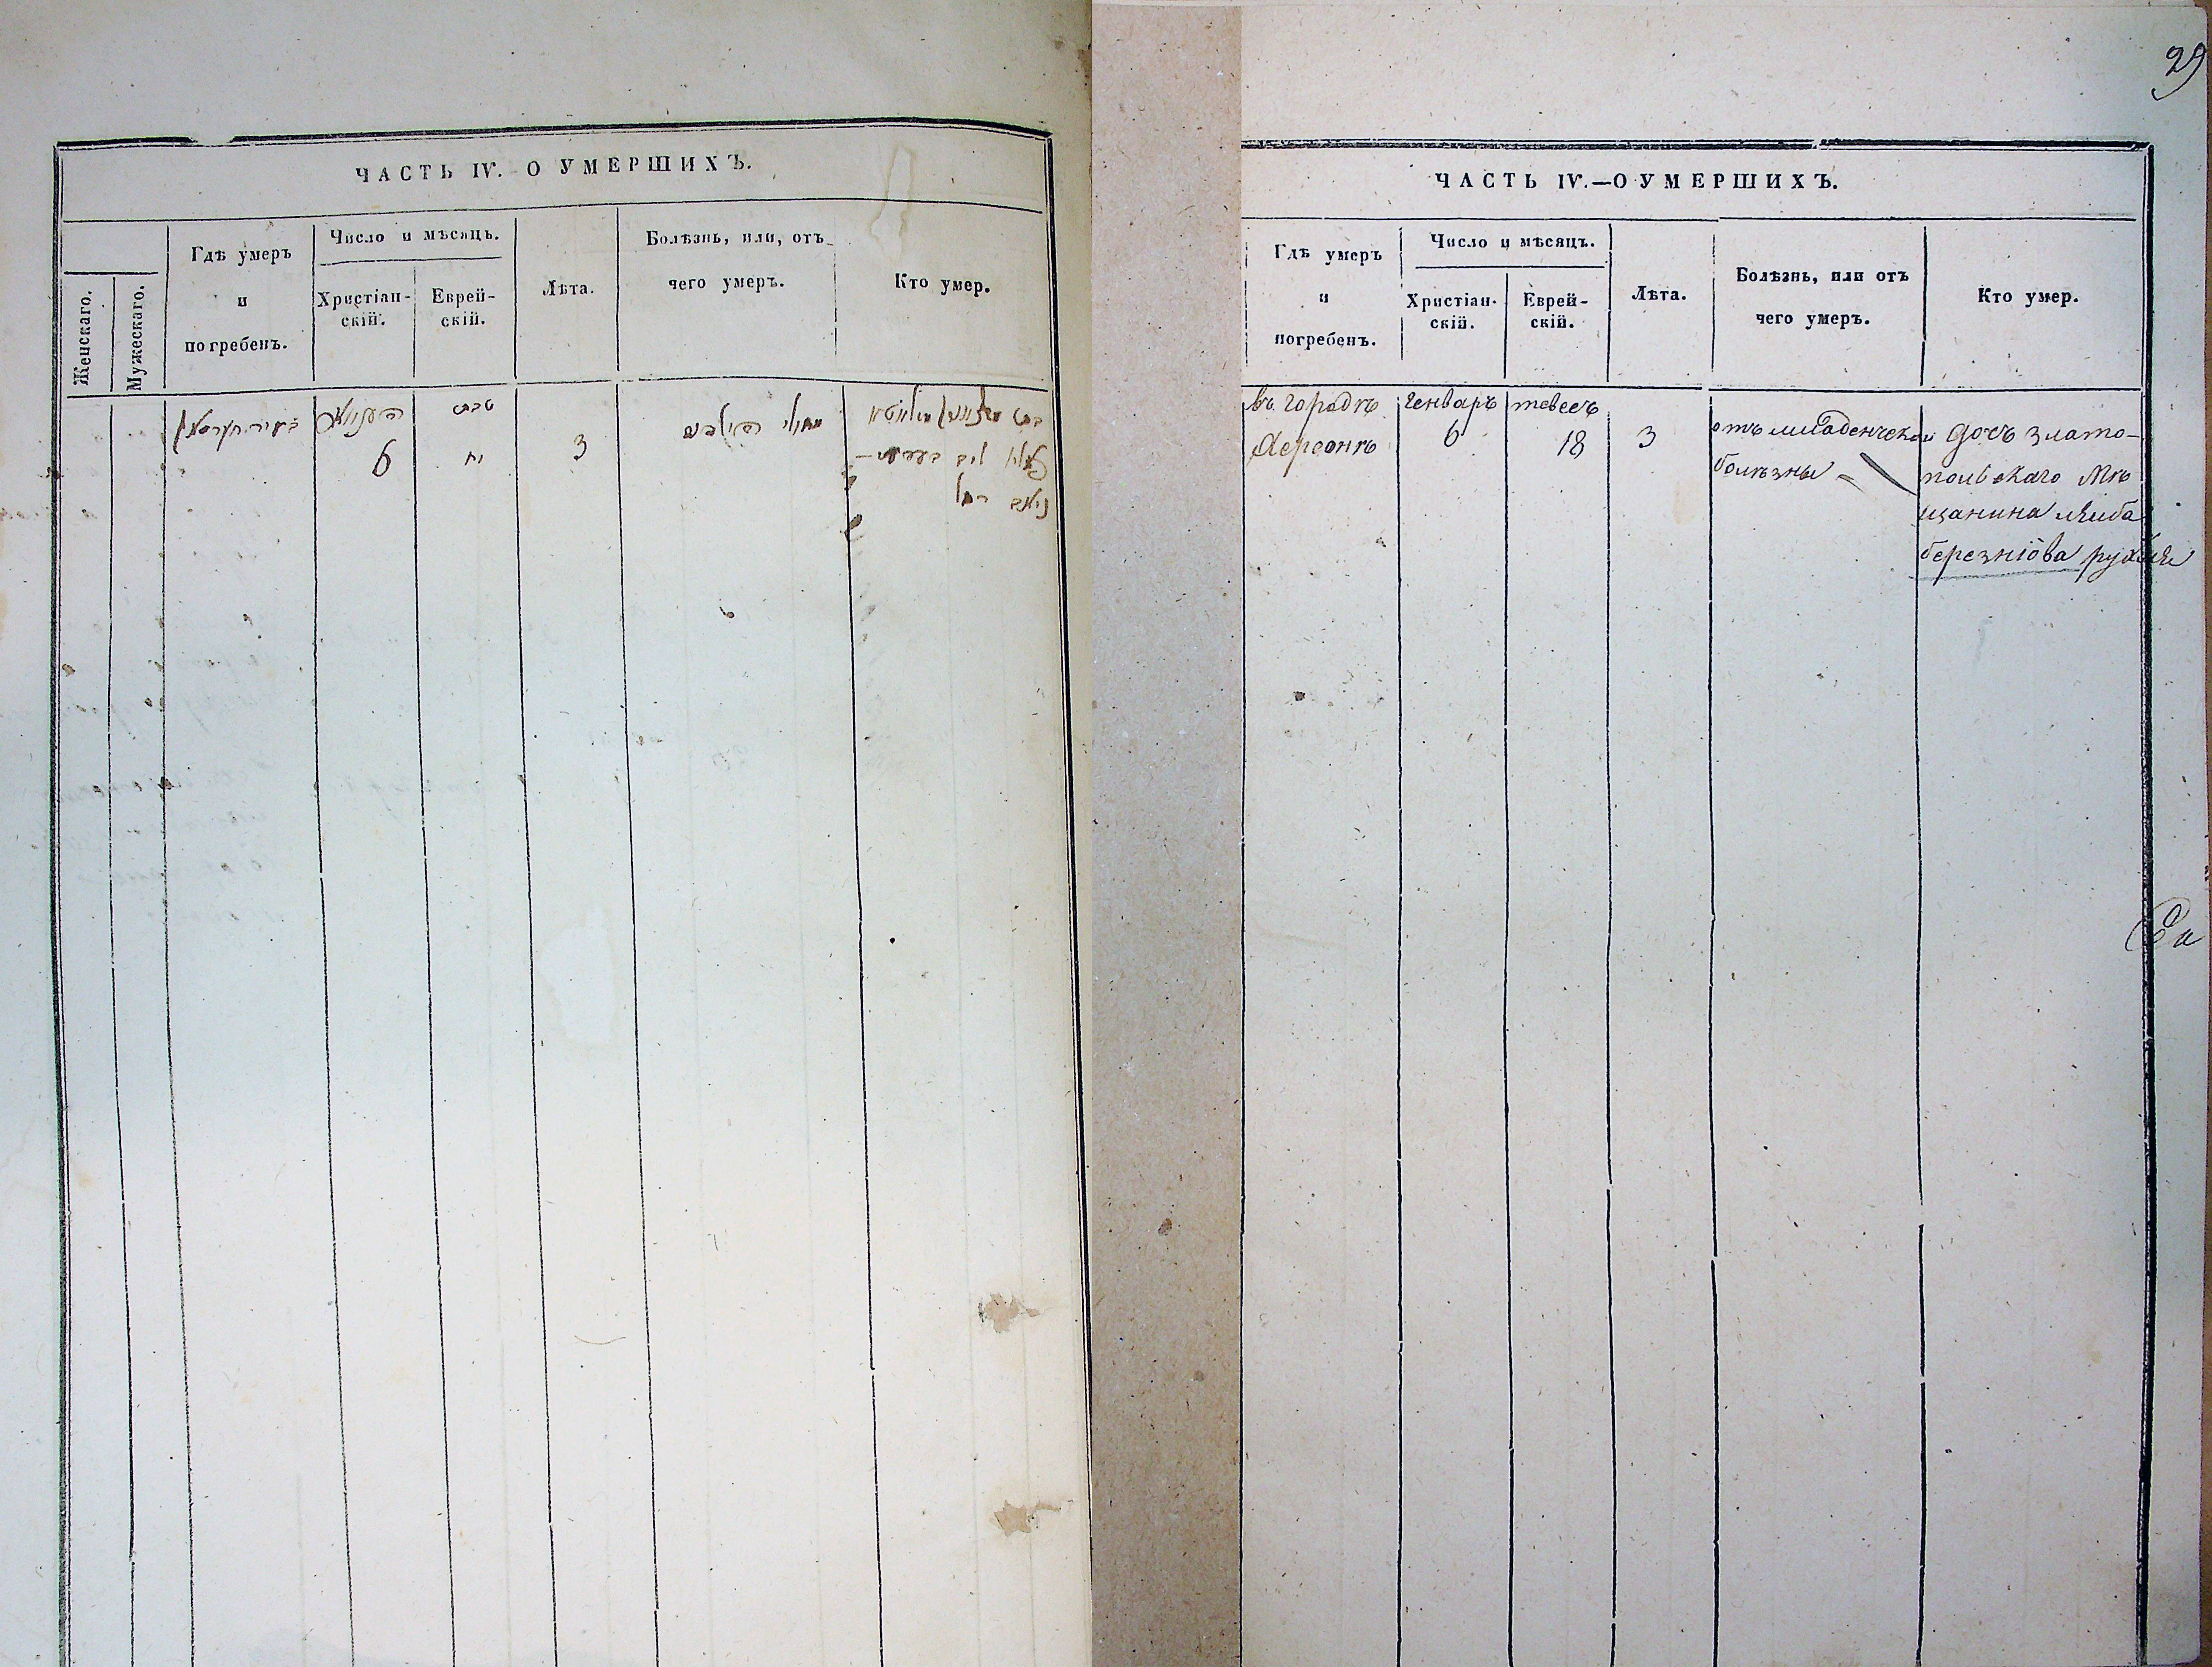 29
ЧАСТЬ IV. О УМЕРШИХЪ.
Женскаго.
Мужескаго.
Гдѣ умеръ
и
погребенъ.
Число и мѣсяцъ.
Христіан-
скій.
Еврей-
скій.
Лѣта.
Болѣзнь, или, отъ
чего умеръ.
Кто умер.
טבת
6
יח
3
ЧАСТЬ IV.—О УМЕРШИХЪ.
Гдѣ умеръ
и
погребенъ.
Число и мѣсяцъ.
Христіан-
скій.
Еврей-
скій.
Лѣта.
Болѣзнь, или отъ
чего умеръ.
Кто умер.
въ городѣ
Херсонѣ
Генваръ
6
тевесъ
18
3
отъ младенческой
болѣзны
дочъ злато-
польскаго мѣ
щанина
березнiова рухля